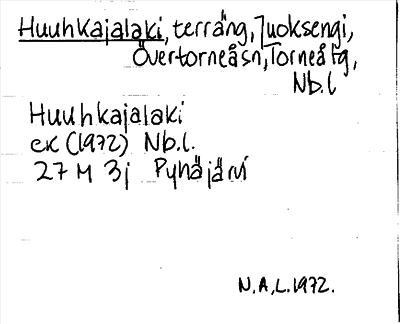 Huuhkajalaki, terräng, Juoksengi,
Övertorneåsn, Torneå tg,
Nb.l
Huuhkajalaki
ek (1972) Nb.l.
27 M 3j Pyhäjärvi
N.A.L. 1972.